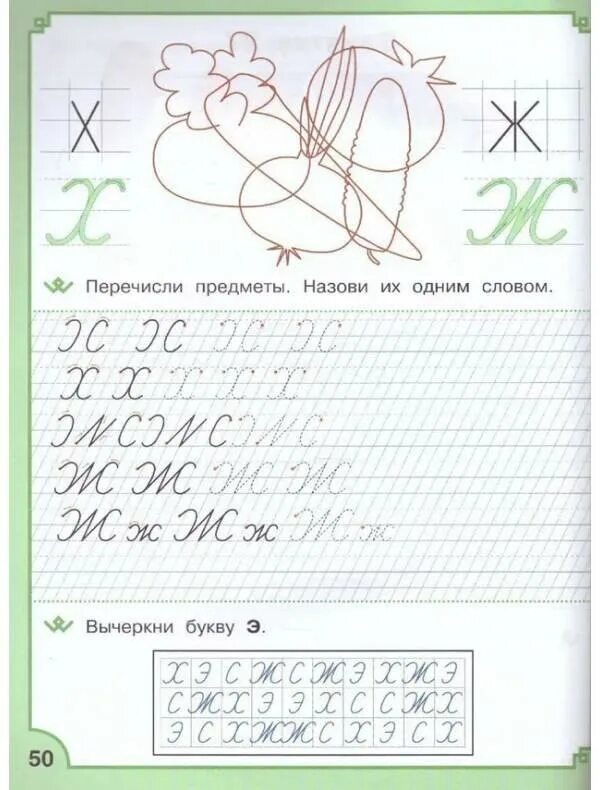 Х Ж
Х Ж
Перечисли предметы. Назови их одним словом.
Х Х Х Х Х
Ж Ж Ж Ж
Ж ж Ж ж Ж ж
Вычеркни букву Э.
Х Э С Ж С Ж Э Х Ж Э
С Ж Х Э Э Х С С Ж Х
Э С Х Ж Ж С Х Э С Х
50